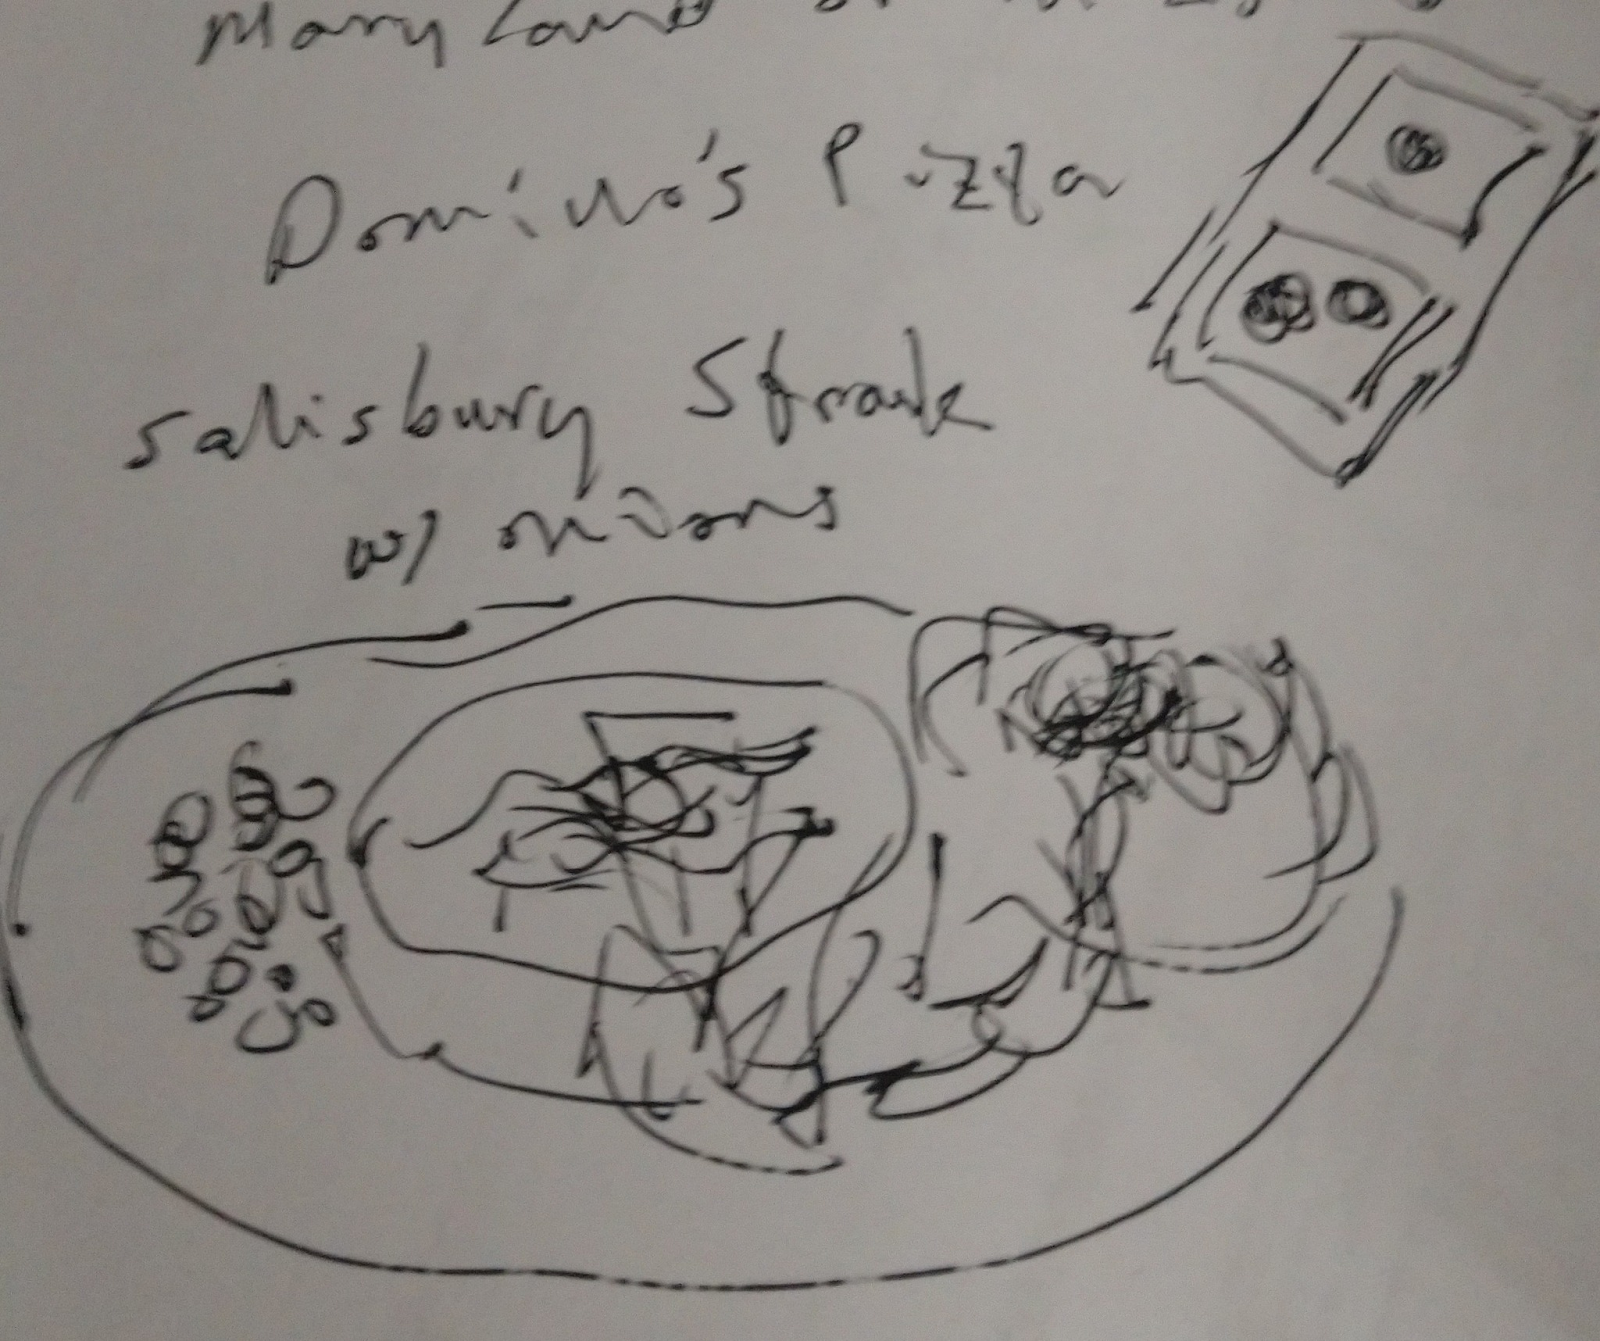 Maryland
Domino's Pizza
Salisbury Steak
w/ onions